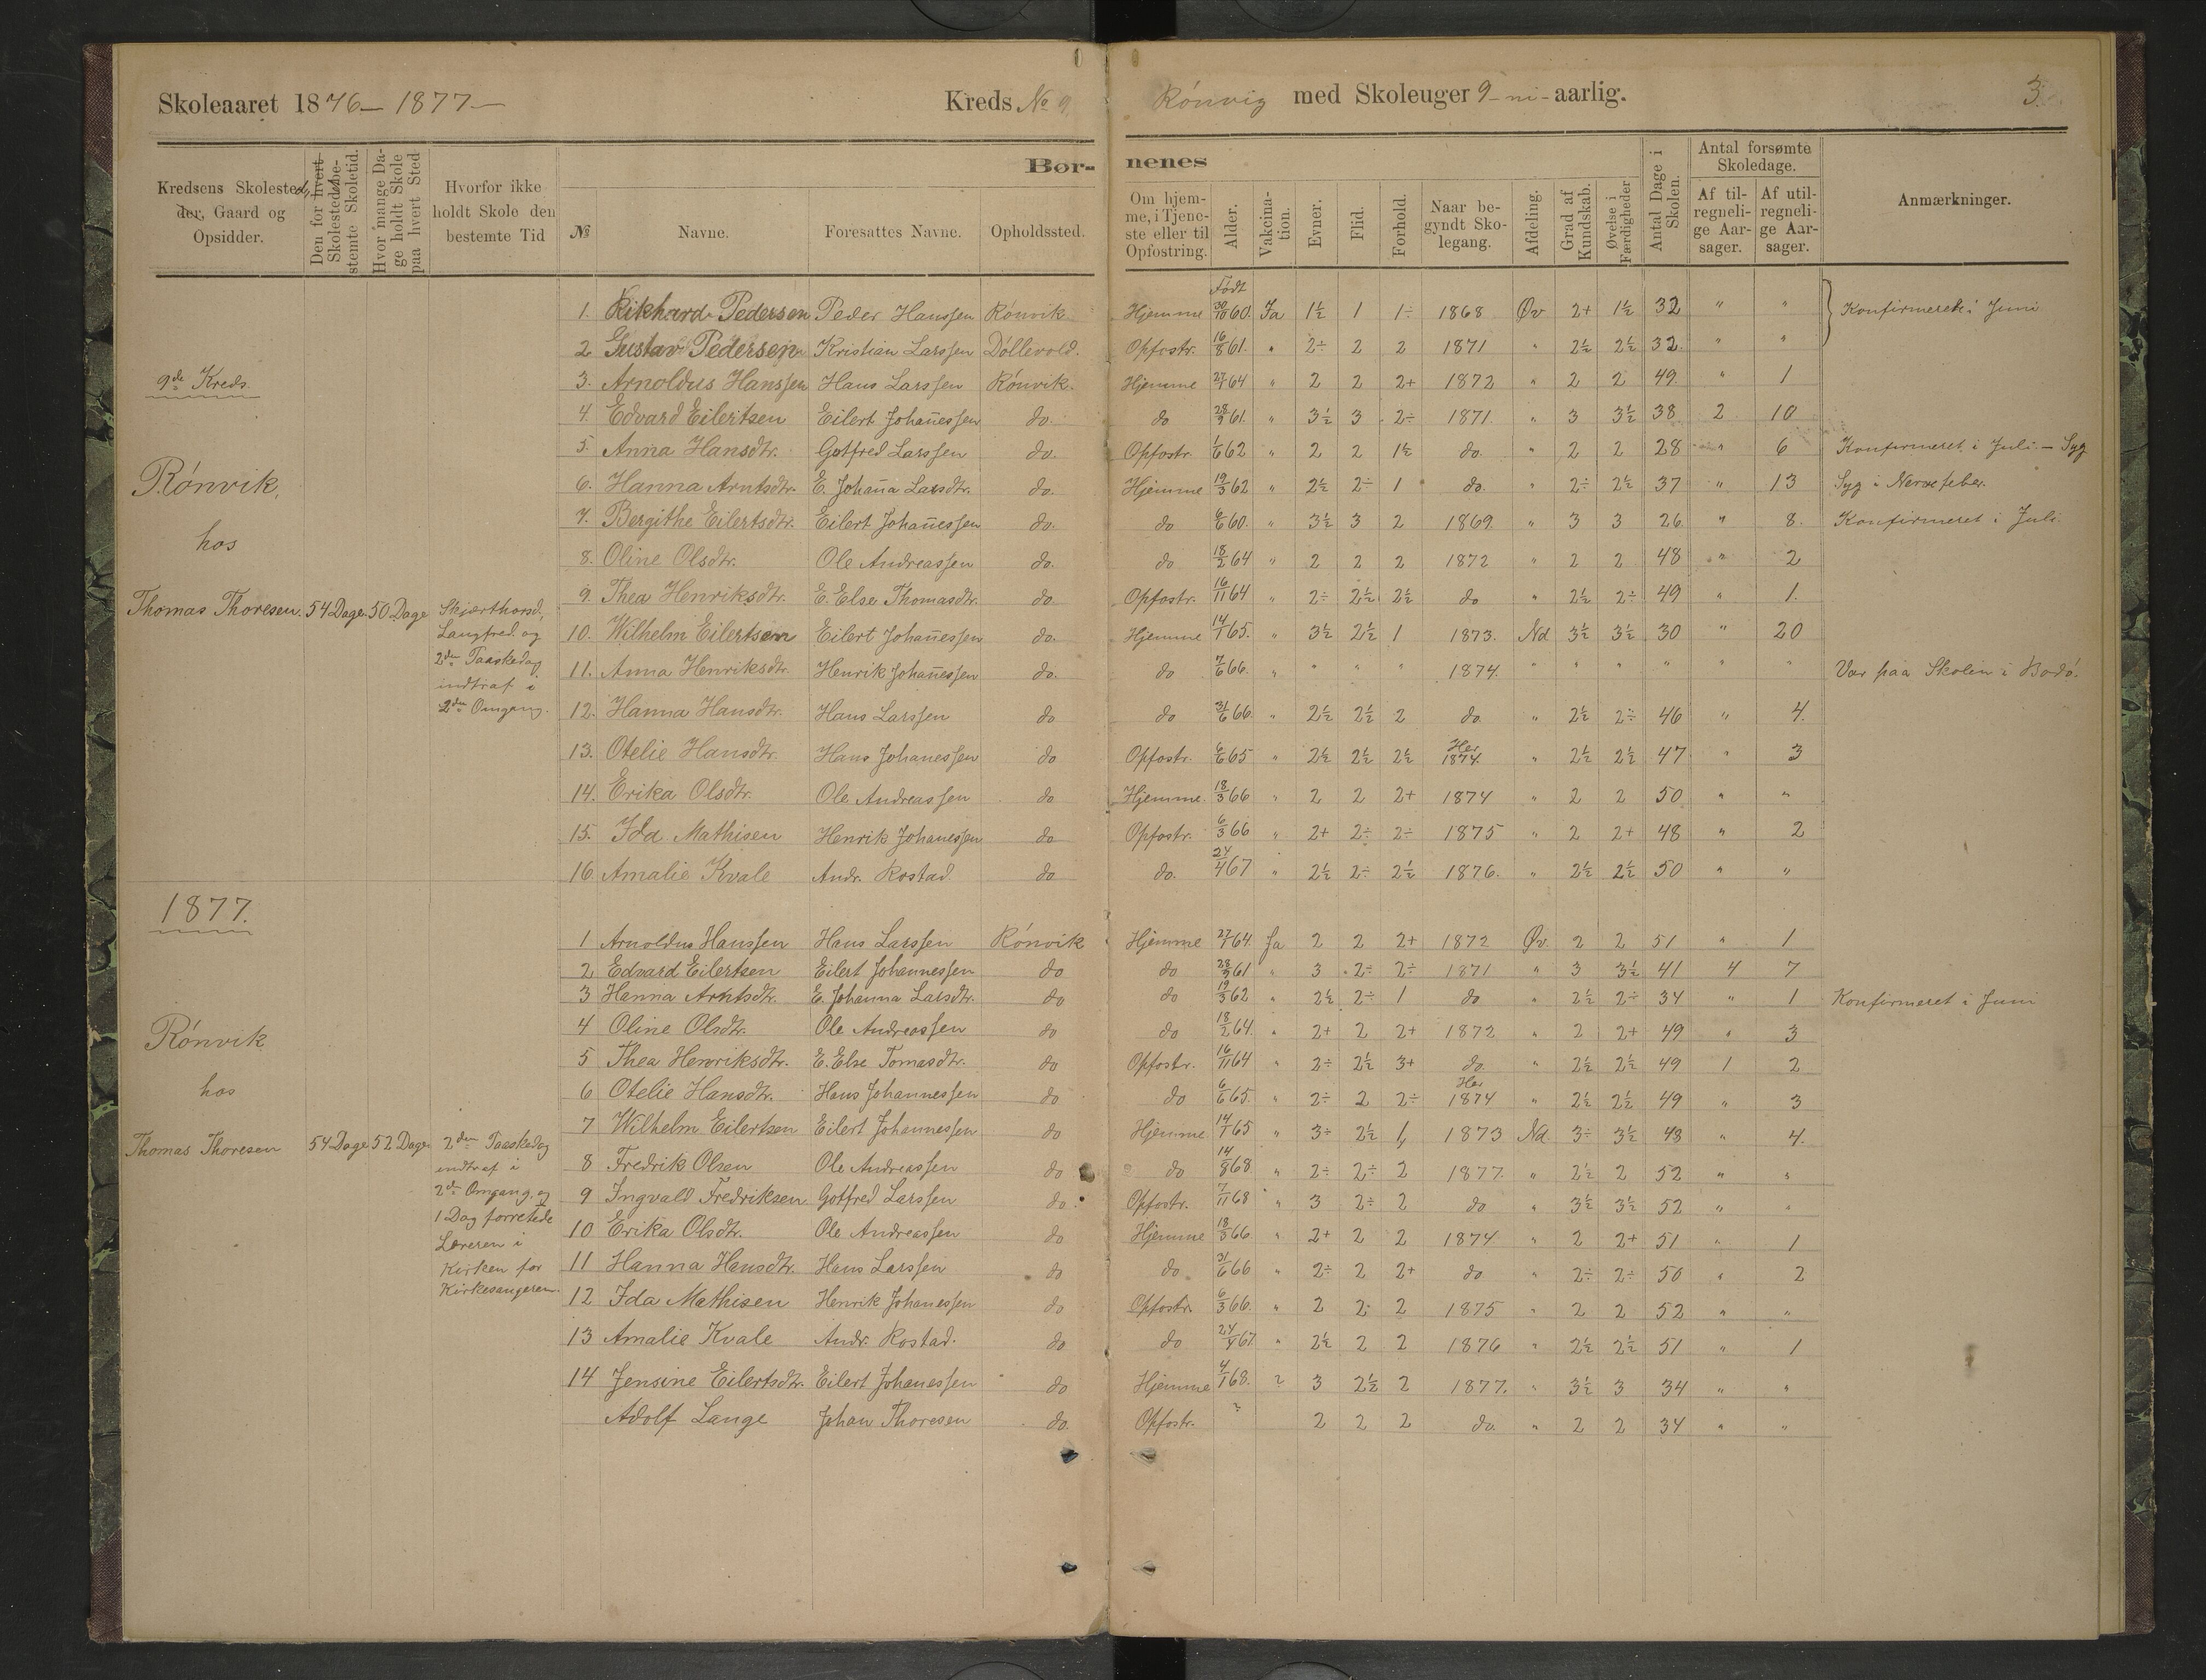 Skoleaaret 1876 – 1877 –
Kreds No 9.
Rönvig med Skoleuger 9 - ni - aarlig.
3.
Kredsens Skolested, der, Gaard og Opsidder.
Den for hvert Skolested bestemte Skoletid.
Hvor mange Dage holdt Skole paa hvert Sted
Hvorfor ikke holdt Skole den bestemte Tid
Børnenes
№
Navne.
Foresattes Navne.
Opholdssted.
Om hjemme, i Tjeneste eller til Opfostring.
Alder.
Vakcination.
Evner.
Flid.
Forhold.
Naar begyndt Skolegang.
Afdeling.
Grad af Kundskab.
Øvelse i Færdigheder
Antal Dage i Skolen.
Antal forsømte Skoledage.
Af tilregnelige Aarsager.
Af utilregnelige Aarsager.
Anmærkninger.
9de Kreds.
Rönvik,
hos
Thomas Thoresen. 54 Dage 50 Dage
Skjærthorsd.,
Langfred. og
2den Paaskedag
indtraf i
2den Omgang.
Født
1. Rikhard Pedersen Peder Hanssen Rönvik Hjemme 30/10 60. Ja 1½ 1 1÷ 1868 Øv 2+ 1½ 32 " " Konfirmeret i Juni
2 Gustav Pedersen Kristian Larssen Döllevold. Opfostr. 16/8 61. " 2÷ 2 2 1871 " 2½ 2½ 32. " "
3. Arnoldus Hanssen Hans Larssen Rönvik. Hjemme 27/1 64 " 2 2 2+ 1872 " 2 2 49. " 1
4. Edvard Eilertsen Eilert Johanessen do. do 28/9 61. " 3½ 3 2÷ 1871. " 3 3½ 38 2 10
5. Anna Hansdtr. Gotfred Larssen do. Opfostr. 1/6 62 " 2 2 1½ do. " 2 2 28 " 6 Konfirmeret i Juli – Syg
6. Hanna Arntsdtr. E. Johana Larsdtr. do. Hjemme 19/3 62 " 2½ 2÷ 1 do. " 2÷ 2½ 37 " 13 Syg i Nervefeber.
7. Bergithe Eilertsdtr. Eilert Johanessen do. do 6/6 60. " 3½ 3 2 1869. " 3 3 26 " 8. Konfirmeret i Juli
8. Oline Olsdtr. Ole Andreassen do. do 18/2 64 " 2 2 2 1872 " 2 2 48 " 2
9. Thea Henriksdtr. E. Else Thomasdtr. do. Opfostr. 16/11 64 " 2÷ 2½ 2½ do " 2½ 2÷ 49 " 1.
10. Wilhelm Eilertsen Eilert Johanessen do. Hjemme 14/1 65. " 3½ 2½ 1 1873. Nd 3½ 3½ 30 " 20
11. Anna Henriksdtr. Henrik Johanessen do. do 7/6 66. " " " " 1874. " " " " " " Var paa Skolen i Bodö.
12. Hanna Hansdtr. Hans Larssen do do 31/6 66. " 2½ 2½ 2 do. " 2½ 2÷ 46 " 4.
13. Otelie Hansdtr. Hans Johanessen do Opfostr. 6/6 65 " 2½ 2½ 2½ Her 1874. " 2½ 2½ 47 " 3
14. Erika Olsdtr. Ole Andreassen do Hjemme. 18/3 66 " 2 2 2+ 1874 " 2 2 50 " "
15. Ida Mathisen Henrik Johanessen do Opfostr. 6/3 66 " 2+ 2÷ 2÷ 1875 " 2 2+ 48 " 2
16. Amalie Kvale Andr. Rostad do do. 24/4 67 " 2½ 2÷ 2½ 1876. " 2½ 2½ 50 " "
1877.
Rönvik
hos
Thomas Thoresen 54 Dage 52 Dage
2den Paaskedag
indtraf i
2d. Omgang, og
1 Dag forrettede
Læreren i
Kirken for
Kirkesangeren.
1 Arnoldus Hanssen Hans Larssen Rönvik Hjemme 27/1 64. Ja 2 2 2+ 1872 Øv. 2 2 51 " 1
2 Edvard Eilertsen Eilert Johannessen do do 28/9 61 " 3 2÷ 2÷ 1871 " 3 3½ 41 4 7
3 Hanna Arntsdtr. E. Johanna Larsdtr. do do 19/3 62 " 2½ 2÷ 1 do " 2½ 2÷ 34 " 1 Konfirmeret i Juni
4 Oline Olsdtr. Ole Andreassen do do 18/2 64. " 2+ 2 2+ 1872 " 2 2+ 49 " 3
5 Thea Henriksdtr. E. Else Tomasdtr. do Opfostr. 16/11 64 " 2÷ 2½ 3+ do. " 2½ 2½ 49 1 2
6 Otelie Hansdtr. Hans Johannessen do do 6/6 65. " 2÷ 2 2÷ Her 1874 " 2½ 2½ 49 " 3
7 Wilhelm Eilertsen Eilert Johannessen do Hjemme 14/1 65 " 3÷ 2½ 1, 1873 Nd. 3÷ 3½ 48 " 4.
8 Fredrik Olsen Ole Andreassen do do 14/8 68 " 2÷ 2÷ 2 1877. " 2½ 2 52 " "
9 Ingvald Fredriksen Gotfred Larssen do. Opfostr. 7/11 68 " 3 2÷ 2 do " 3½ 3½ 52 " "
10 Erika Olsdtr. Ole Andreassen do Hjemme 18/3 66 " 2+ 2 2 1874 " 2 2+ 51 " 1
11 Hanna Hansdtr. Hans Larssen do do 31/6 66 " 2÷ 2 2+ do " 2÷ 2÷ 50 " 2
12 Ida Mathisen Henrik Johanessen do Opfostr. 6/3 66. " 2 2 2 1875 " 2 2 52 " "
13 Amalie Kvale Andr. Rostad. do do 24/4 67. " 2½ 2 2 1876 " 2½ 2½ 51 " 1
14 Jensine Eilertsdtr. Eilert Johanessen do Hjemme 4/1 68. ? 3 2½ 2 1877. " 3½ 3 34 " "
Adolf Lange Johan Thoresen do. Opfostr. ? 2 2 2 do. " 2 2 34 " "